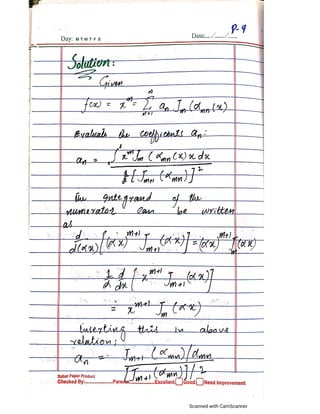 P-9
Day: M T W T F S
Date:..../..../....
Solution:
Given
f(x) = x^m = Σ_{n=1}^{∞} a_n J_m (α_mn (x)
Evaluate the coefficients a_n:
a_n = ∫ x^m J_m (α_mn (x) x dx
½ [J_{m+1} (α_mn)]^2
The integrand of the
numerator can be written
as
d/d(αx) [(αx)^{m+1} J_{m+1} (αx)] = (αx)^{m+1} J_m (αx)
1/α d/dx [x^{m+1} J_{m+1} (αx)]
= x^{m+1} J_m (αx)
Inserting this in above
relation;
a_n = J_{m+1} (α_mn)/α_mn
[J_{m+1} (α_mn)]^2/2
Rabar Paper Product
Checked By: Parents Excellent Good Need Improvement
Scanned with CamScanner